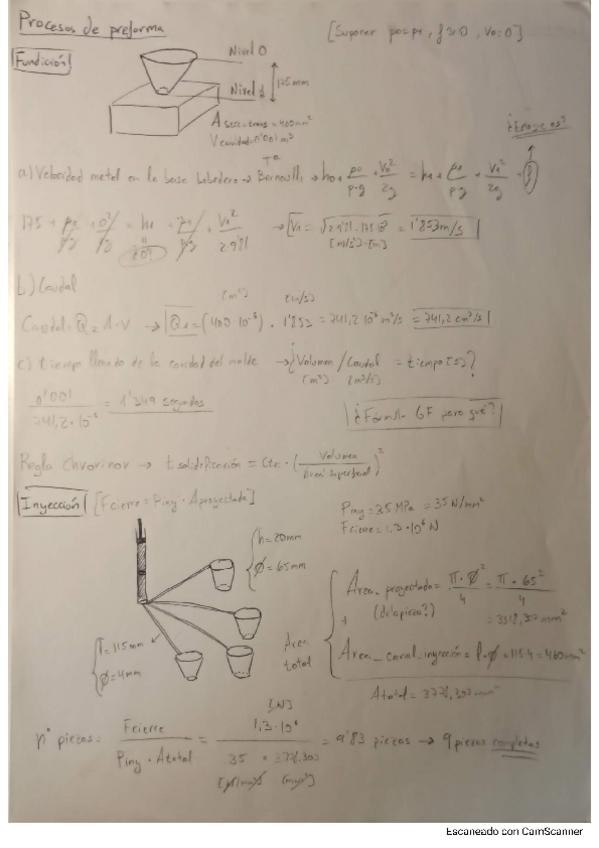 Procesos de preforma
[Suponer p0=p1, f≈0, V0=0]
Fundición
Nivel 0
Nivel 1
175mm
A secc-trans=400mm²
V cavidad=0'001m³
a) Velocidad metal en la base bebedero → Bernoulli → h0 + p0/ρ·g + V0²/2g = h1 + p1/ρ·g + V1²/2g + f
175 + p0/ρg + 0²/2g = h1 + p1/ρg + V1²/2·9'81 → V1 = √2·9'81·175·10⁻³ = 1'853m/s
¿0?
[m/s²]·[m]
b) Caudal
[m²] [m/s]
Caudal: Q = A·V → Q1 = (400·10⁻⁶)·1'853 = 741,2·10⁻⁶ m³/s = 741,2 cm³/s
c) tiempo llenado de la cavidad del molde → ¿Volumen/Caudal = tiempo[s]?
[m³] [m³/s]
0'001/741,2·10⁻⁶ = 1'349 segundos
¿Fórmula GF para qué?
Regla Chvorinov → t solidificación = Cte·(Volumen/Área superficial)²
Inyección [Fcierre = Piny·Aproyectada]
Piny=35MPa=35N/mm²
Fcierre=1,3·10⁶N
h=20mm
Ø=65mm
l=115mm
Ø=4mm
Área total
Área_proyectada = π·Ø²/4 = π·65²/4
(de la pieza?)
= 3318,307mm²
+
Área_canal_inyección = l·Ø = 115·4 = 460mm²
Atotal = 3778,307mm²
[N]
nº piezas = Fcierre/Piny·Atotal = 1,3·10⁶/35·3778,307 = 9'83 piezas → 9 piezas completas
[N/mm²] [mm²]
Escaneado con CamScanner